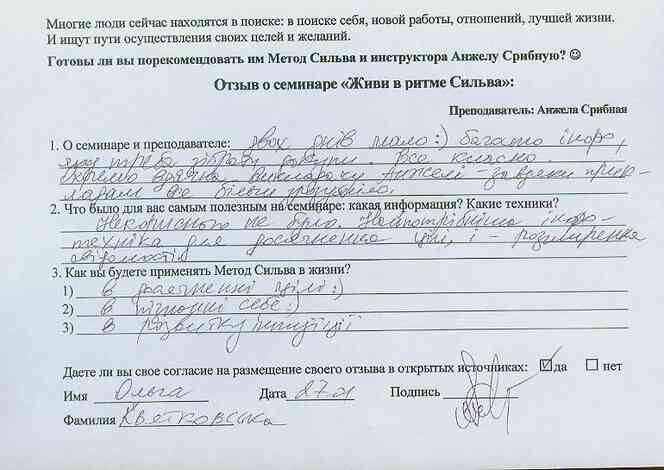 Многие люди сейчас находятся в поиске: в поиске себя, новой работы, отношений, лучшей жизни.
И ищут пути осуществления своих целей и желаний.
Готовы ли вы порекомендовать им Метод Сильва и инструктора Анжелу Срибную? ☺
Отзыв о семинаре «Живи в ритме Сильва»:
Преподаватель: Анжела Срибная
1. О семинаре и преподавателе: двох днів мало :) багато інфо,
яку треба зібрати докупи. Все класно.
Окремо вдячна викладачу Анжелі - завдяки прик-
ладам все більш зрозуміло.
2. Что было для вас самым полезным на семинаре: какая информация? Какие техники?
Некорисного не було. Найпотрібніша інфо-
техніка для досягнення цілі, і - розширення
свідомості
3. Как вы будете применять Метод Сильва в жизни?
1) в досягненні цілі :)
2) в пізнанні себе :)
3) в розвитку інтуїції
Даете ли вы свое согласие на размещение своего отзыва в открытых источниках: ☑ да ☐ нет
Имя Ольга Дата Подпись
Фамилия Квятковська